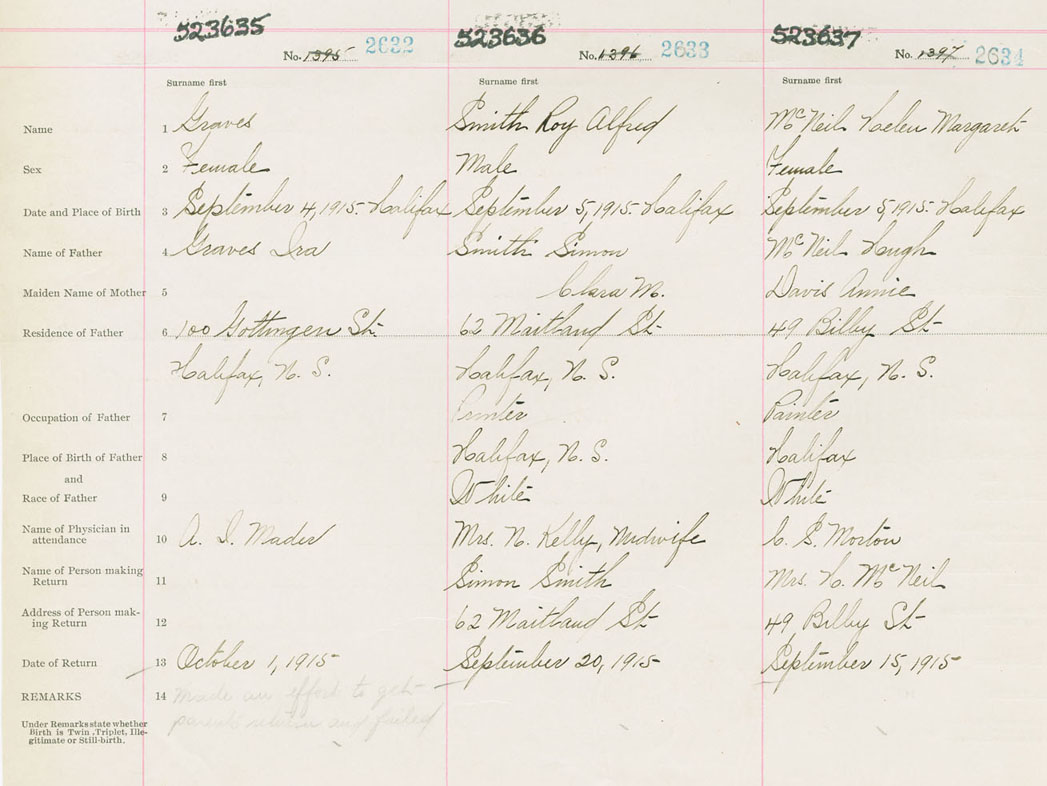 523635 523636 523637
No. 1395 2632 No. 1396 2633 No. 1397 2634
Surname first Surname first Surname first
Name 1 Graves Smith Roy Alfred McNeil Helen Margaret
Sex 2 Female Male Female
Date and Place of Birth 3 September 4, 1915. Halifax September 5, 1915. Halifax September 5, 1915. Halifax
Name of Father 4 Graves Ira Smith Simon McNeil Hugh
Maiden Name of Mother 5 Clara M. Davis Annie
Residence of Father 6 100 Gottingen St. 62 Maitland St 49 Bilby St
Halifax, N. S. Halifax, N. S. Halifax, N. S.
Occupation of Father 7 Printer Painter
Place of Birth of Father 8 Halifax, N. S. Halifax
and
Race of Father 9 White White
Name of Physician in
attendance 10 A. I. Mader Mrs. N. Kelly, Midwife C. S. Morton
Name of Person making
Return 11 Simon Smith Mrs. H. McNeil
Address of Person mak-
ing Return 12 62 Maitland St 49 Bilby St
Date of Return 13 October 1, 1915 September 20, 1915 September 15, 1915
REMARKS 14 Made an effort to get
parents return and failed
Under Remarks state whether
Birth is Twin, Triplet, Ille-
gitimate or Still-birth.